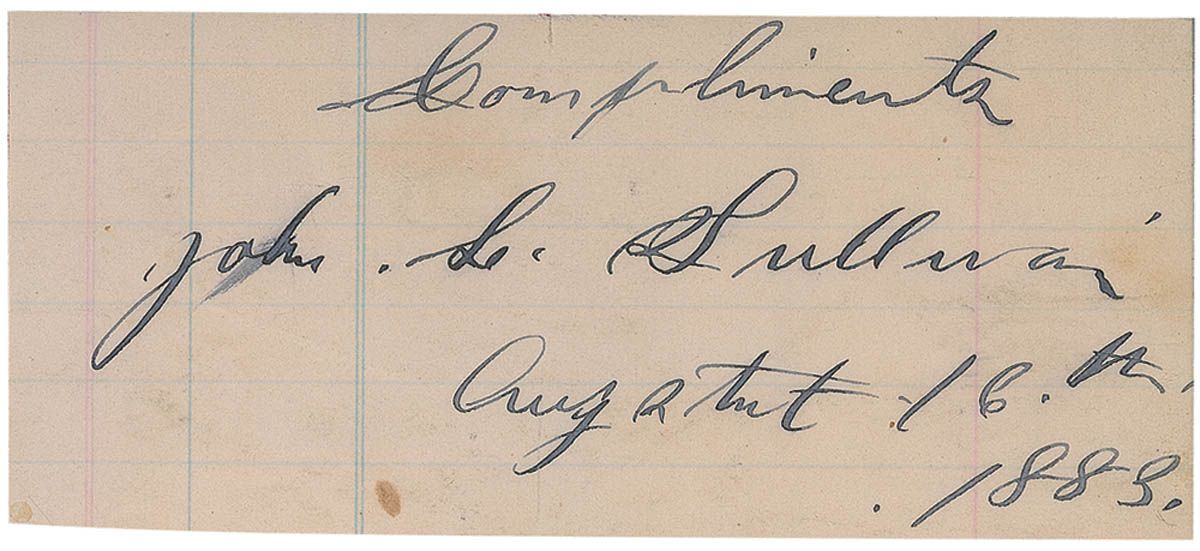 Compliments
John. L. Sullivan
August 16.th
.1883.